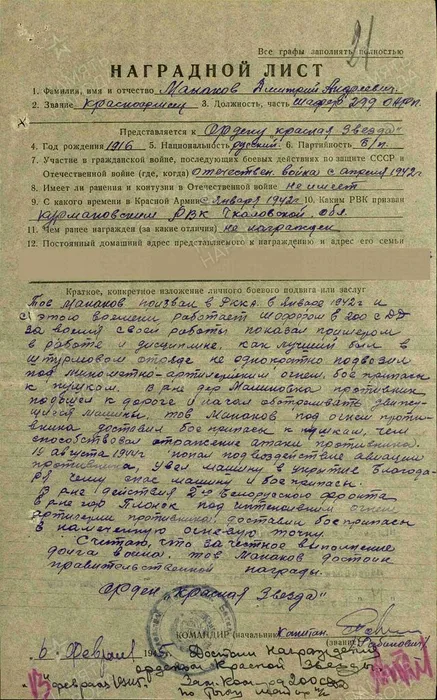 21
Все графы заполнять полностью
НАГРАДНОЙ ЛИСТ
1. Фамилия, имя и отчество Манаков Дмитрий Андреевич.
2. Звание красноармеец 3. Должность, часть шофер
Представляется к Ордену "Красная Звезда"
4. Год рождения 1916 5. Национальность русский 6. Партийность б/п.
7. Участие в гражданской войне, последующих боевых действиях по защите СССР и
Отечественной войне (где, когда) отечествен. война с апреля 1942г
8. Имеет ли ранения и контузии в Отечественной войне не имеет
9. С какого времени в Красной Армии с Января 1942г 10. Каким РВК призван
Курманаевским РВК Чкаловской обл.
11. Чем ранее награжден (за какие отличия) не награжден
12. Постоянный домашний адрес представляемого к награждению и адрес его семьи
Краткое, конкретное изложение личного боевого подвига или заслуг
Тов Манаков призван в РККА. в Январе 1942г и
с этого времени работает шофером в 200 сд
За время своей работы показал примером
в работе и дисциплине. как лучший был в
штурмовом отряде не однократно подвозил
под минометно-артилерийским огнем, боеприпасы
к пушкам. В р-не дер Малиновка противник
подошел к дороге и начал обстреливать движу-
щиеся машины. тов Манаков под огнем проти-
вника доставил боеприпасы к пушкам, чем
способствовал отражение атаки противника.
августа 1944г попал под воздействие авиации
противника, увел машину в укрытие благода-
ря чему спас машину и боеприпасы.
В р-не действия 2го Белорусского фронта
в р-не гор Плонск под интенсивным огнем
артилерии противника доставил боеприпасы
в намеченную огневую точку
Считаю, что за честное выполнение
долга воина. тов Манаков достоин
правительственной награды.
Орден "Красная Звезда"
КОМАНДИР (начальник) Капитан
(звание) Рабинович
6. Февраля 1945г. Достоин Награждения
орденом Красной Звезды
февраля 1945г. Зам. Ком-ра 200 сд
по тылу